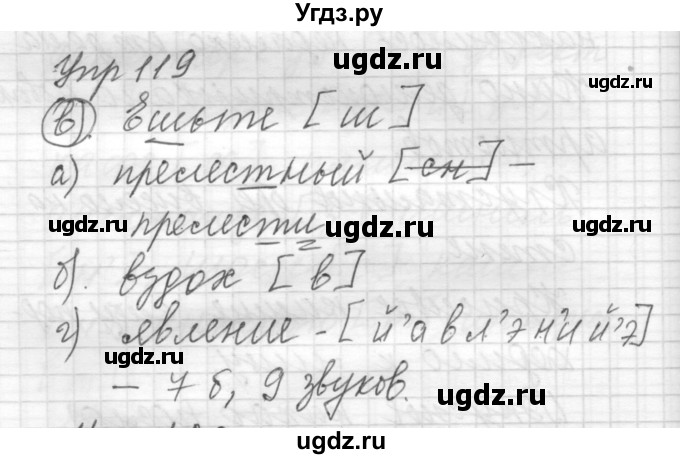 Угдз.ру
Упр 119
ugdz.ru ugdz.ru
в). Ешьте [ш]
а) прелестный [сн] –
ugdz.ru ugdz.ru ugdz.ru
прелести
б). вздох [в]
г) явление - [й'а в л'э н'и й'э]
ugdz.ru ugdz.ru
– 7 б, 9 звуков.
ugdz.ru